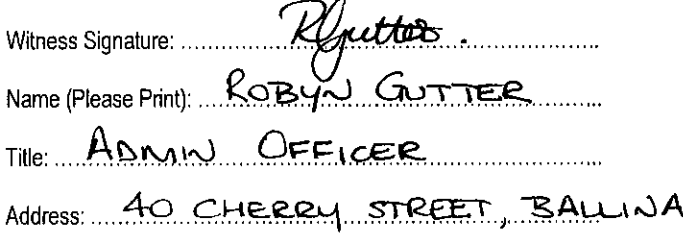 Witness Signature: RGutter.
Name (Please Print): ROBYN GUTTER
Title: ADMIN OFFICER
Address: 40 CHERRY STREET, BALLINA